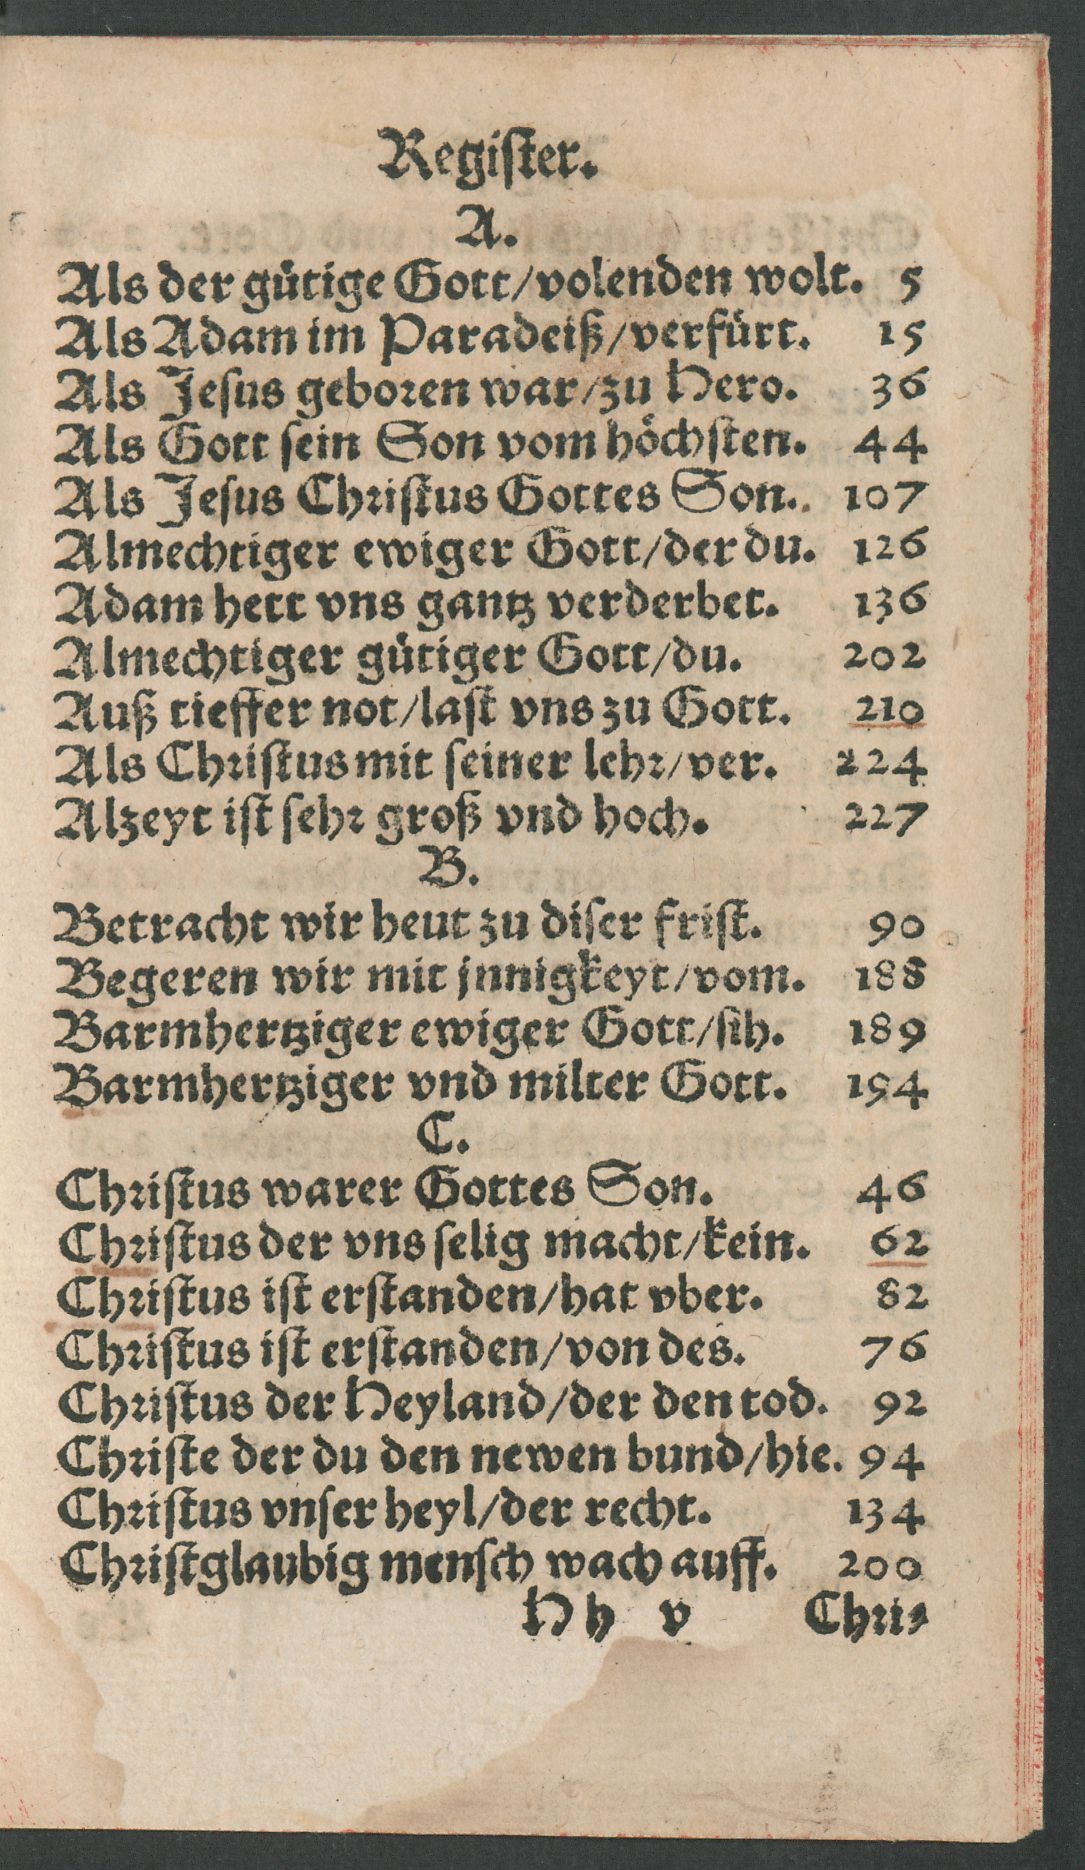 Register.
A.
Als der gütige Gott/volenden wolt. 5
Als Adam im Paradeiß/verfürt. 15
Als Jesus geboren war/zu Hero. 36
Als Gott sein Son vom höchsten. 44
Als Jesus Christus Gottes Son. 107
Almechtiger ewiger Gott/der du. 126
Adam hett vns gantz verderbet. 136
Almechtiger gütiger Gott/du. 202
Auß tieffer not/last vns zu Gott. 210
Als Christus mit seiner lehr/ver. 224
Alzeyt ist sehr groß vnd hoch. 227
B.
Betracht wir heut zu diser frist. 90
Begeren wir mit jnnigkeyt/vom. 188
Barmhertziger ewiger Gott/sih. 189
Barmhertziger vnd milter Gott. 194
C.
Christus warer Gottes Son. 46
Christus der vns selig macht/kein. 62
Christus ist erstanden/hat vber. 82
Christus ist erstanden/von des. 76
Christus der Heyland/der den tod. 92
Christe der du den newen bund/hie. 94
Christus vnser heyl/der recht. 134
Christglaubig mensch wach auff. 200
Hh v Chris